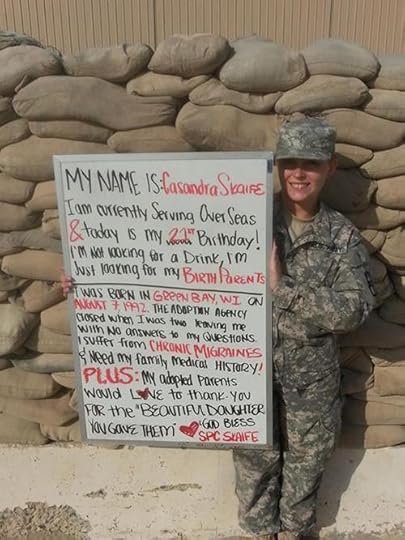 MY NAME IS: Casandra Skaife
I am currently Serving OverSeas
& today is my 21st Birthday!
I'm Not looking for a Drink, I'm
Just looking for my BIRTH PARENTS
I WAS BORN IN GREEN BAY, WI. ON
AUGUST 7, 1992. THE ADOPTION AGENCY
CLOSED WHEN I WAS two leaving me
with NO ANSWERS to my QUESTIONS.
I SUFFER FROM CHRONIC MIGRAINES
& NEED my family medical HISTORY!
PLUS: My adopted Parents
Would LOVE to thank you
FOR the "BEAUTIFUL DAUGHTER
YOU GAVE THEM" GOD BLESS
SPC SKAIFE